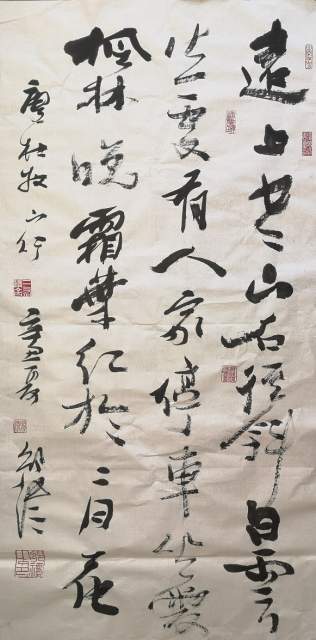 遠上寒山石徑斜白雲
生處有人家停車坐愛
楓林晚霜葉紅於二月花
唐杜牧山行
辛丑夏